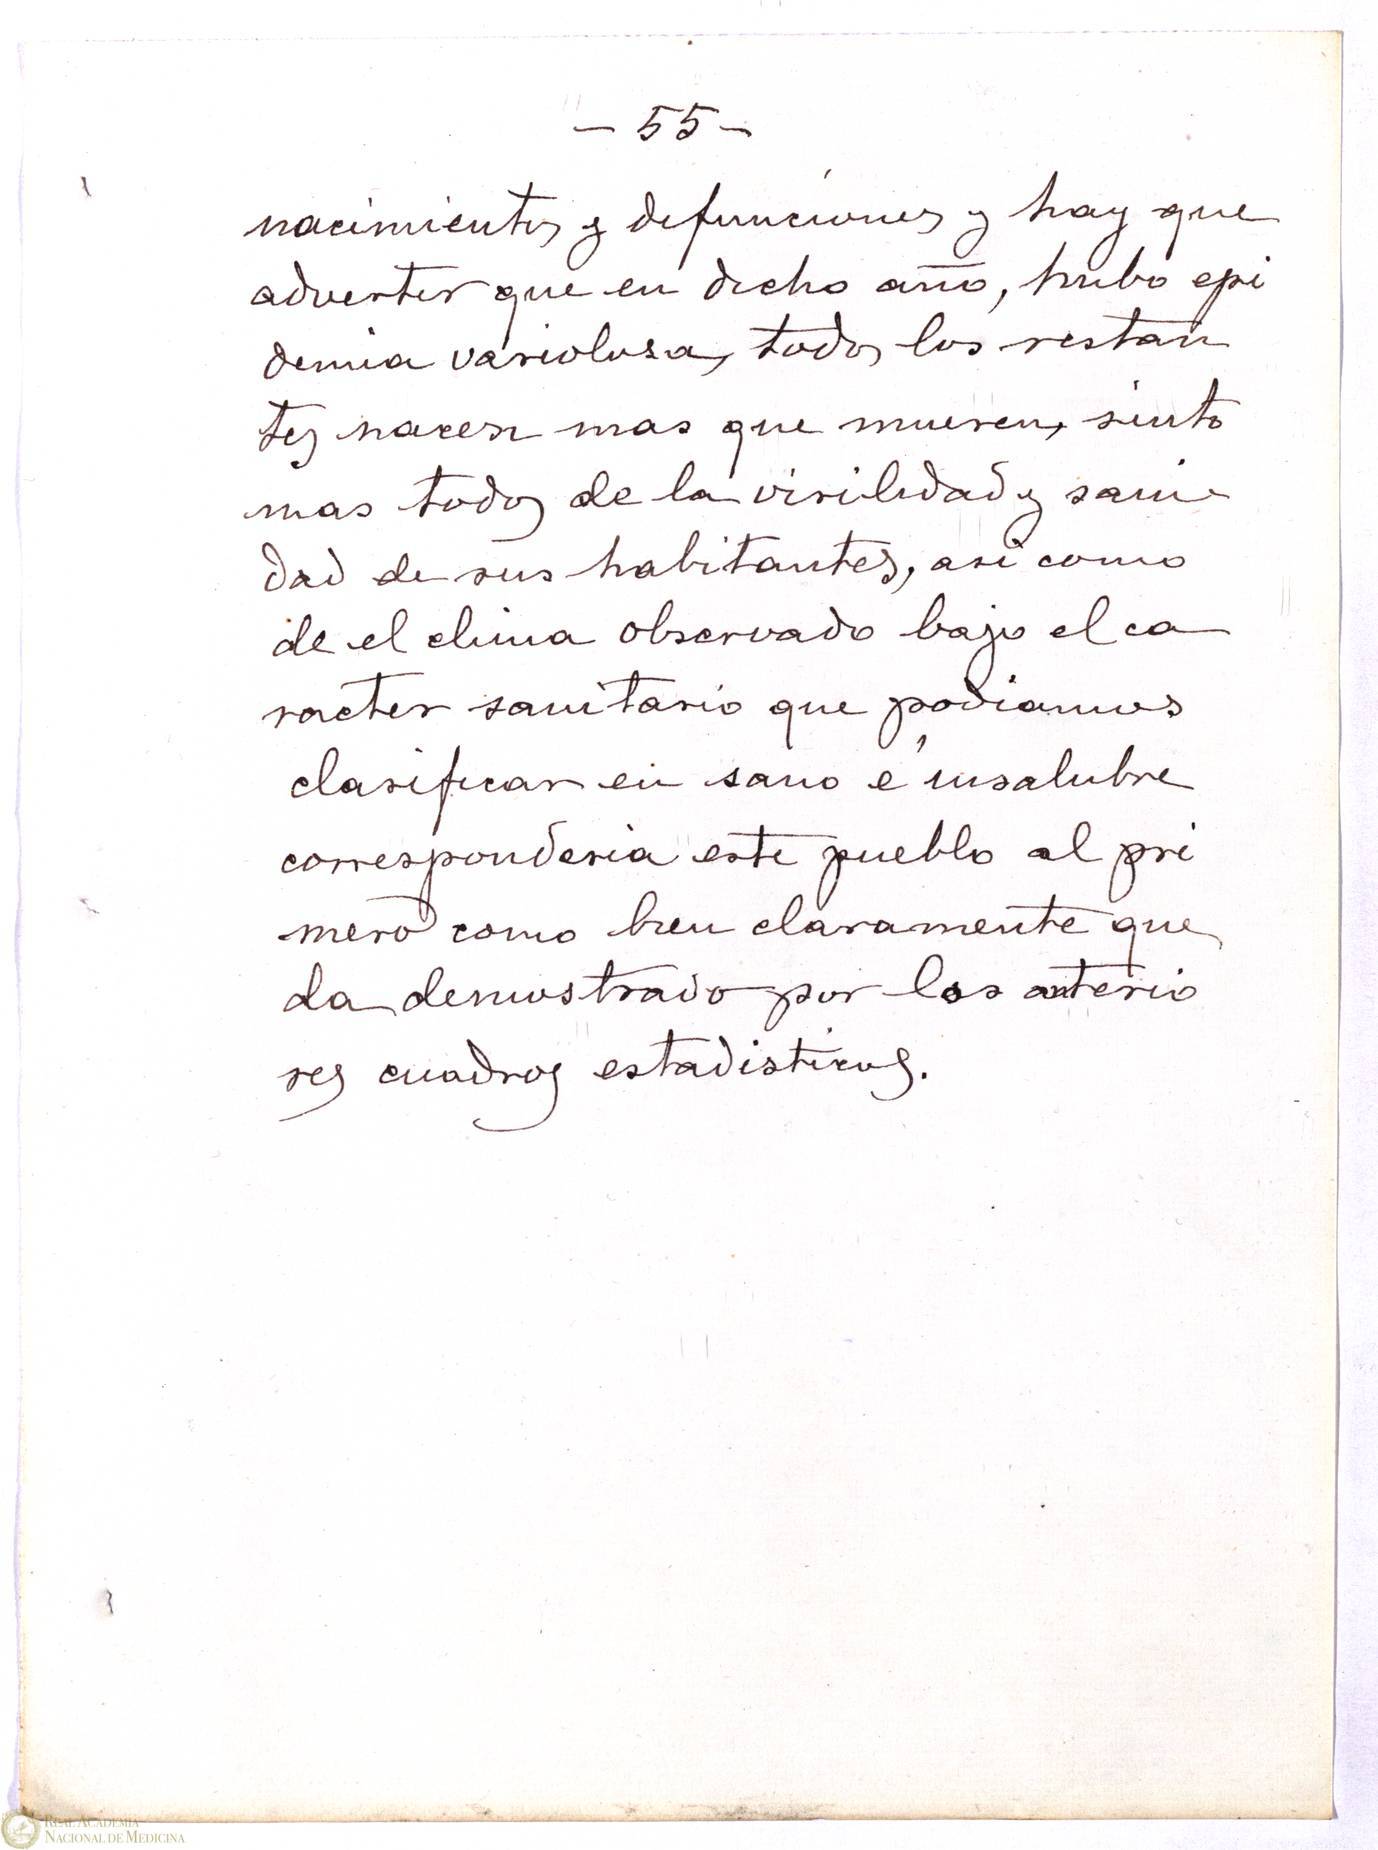 - 55 -
nacimientos y defunciones y hay que
advertir que en dicho año, hubo epi
demia variolosa, todos los restan
tes nacen mas que mueren, sinto
mas todos de la virilidad y sani
dad de sus habitantes, asi como
de el clima observado bajo el ca
racter sanitario que podiamos
clasificar en sano é insalubre
corresponderia este pueblo al pri
mero como bien claramente que
da demostrado por los anterio
res cuadros estadisticos.
REAL ACADEMIA
NACIONAL DE MEDICINA